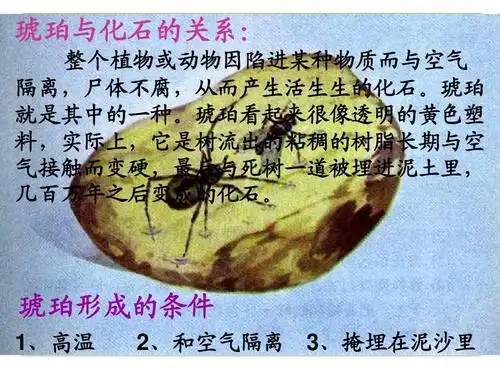 琥珀与化石的关系:
整个植物或动物因陷进某种物质而与空气
隔离，尸体不腐，从而产生活生生的化石。琥珀
就是其中的一种。琥珀看起来很像透明的黄色塑
料，实际上，它是树流出的粘稠的树脂长期与空
气接触而变硬，最后与死树一道被埋进泥土里，
几百万年之后变成的化石。
琥珀形成的条件
1、高温 2、和空气隔离 3、掩埋在泥沙里